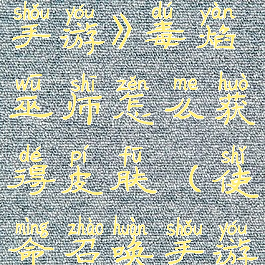 shǒu yóu dú yàn
手游》毒焰
wū shī zěn me huò
巫师怎么获
dé pí fū shǐ
得皮肤(使
mìng zhào huàn shǒu yóu
命召唤手游